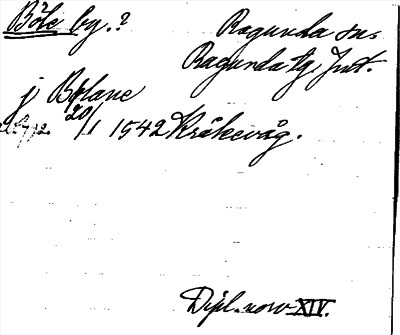 Böle by.? Ragunda sn.
Ragunda tg. Jmt.
j Bølane
20/1 1542 Kråkevåg.
Dipl. norv XIV.